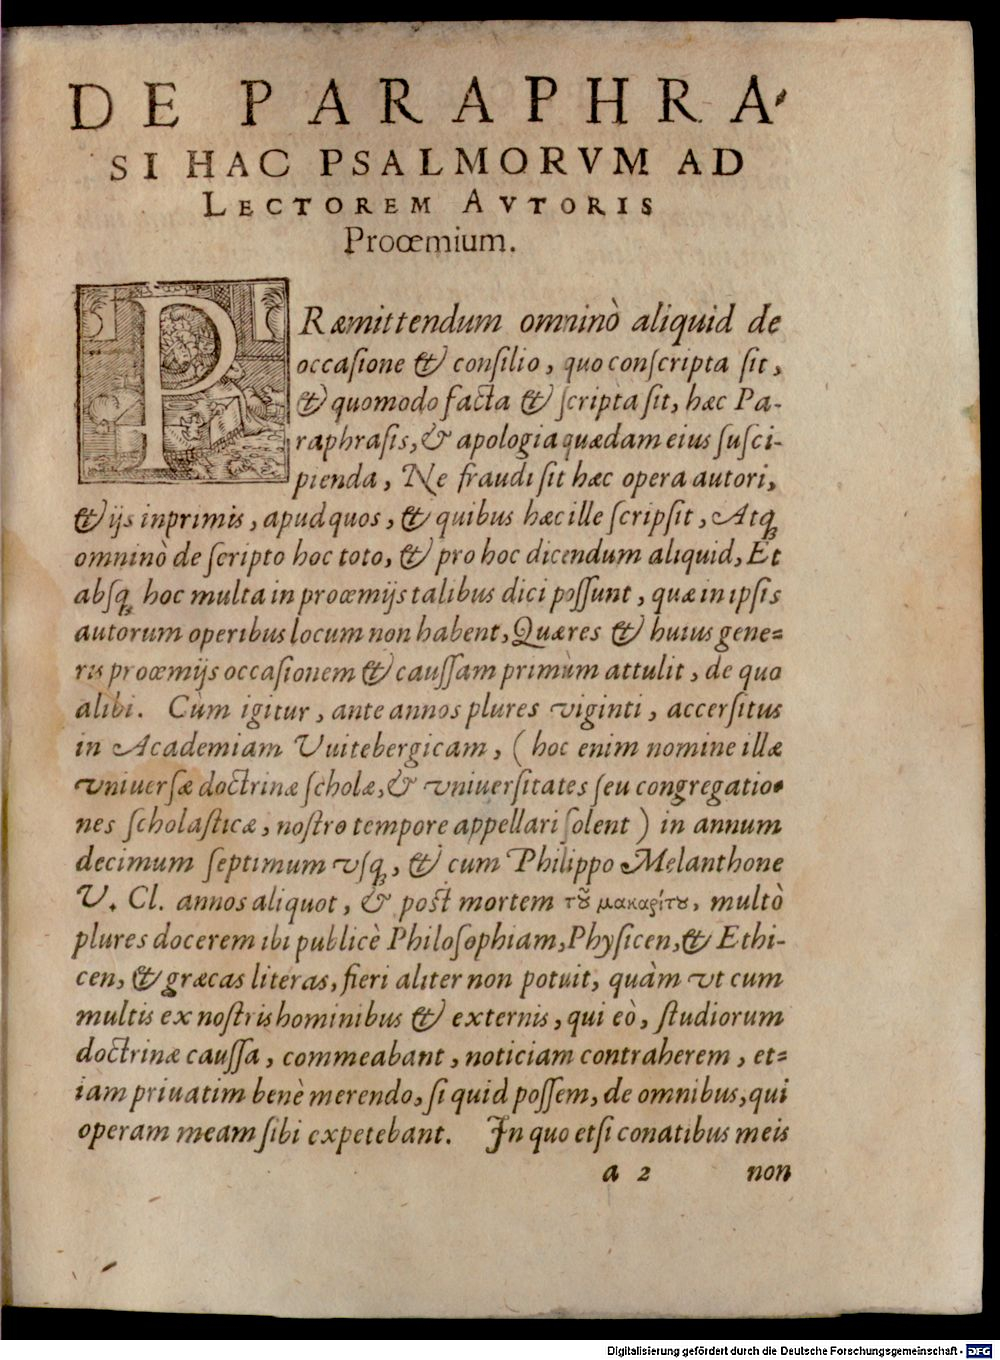 DE PARAPHRA-
SI HAC PSALMORVM AD
LECTOREM AVTORIS
Proœmium.
PRæmittendum omninò aliquid de
occaſione & conſilio, quo conſcripta ſit,
& quomodo facta & ſcripta ſit, hæc Pa-
raphraſis, & apologia quædam eius ſuſci-
pienda, Ne fraudi ſit hæc opera autori,
& ijs inprimis, apud quos, & quibus hæc ille ſcripſit, Atq;
omninò de ſcripto hoc toto, & pro hoc dicendum aliquid, Et
abſq; hoc multa in proœmijs talibus dici poſſunt, quæ in ipſis
autorum operibus locum non habent, Quæ res & huius gene=
ris proœmijs occaſionem & cauſſam primùm attulit, de quo
alibi. Cùm igitur, ante annos plures viginti, accerſitus
in Academiam Vuitebergicam, (hoc enim nomine illæ
vniuerſæ doctrinæ ſcholæ, & vniuerſitates ſeu congregatio-
nes ſcholaſticæ, noſtro tempore appellari ſolent) in annum
decimum ſeptimum vſq;, & cum Philippo Melanthone
V. Cl. annos aliquot, & poſt mortem τȣ͂ μακαρίτȣ, multò
plures docerem ibi publicè Philoſophiam, Phyſicen, & Ethi-
cen, & græcas literas, fieri aliter non potuit, quàm vt cum
multis ex noſtris hominibus & externis, qui eò, ſtudiorum
doctrinæ cauſſa, commeabant, noticiam contraherem, et=
iam priuatim benè merendo, ſi quid poſſem, de omnibus, qui
operam meam ſibi expetebant. In quo etſi conatibus meis
a 2 non
Digitalisierung gefördert durch die Deutsche Forschungsgemeinschaft - DFG